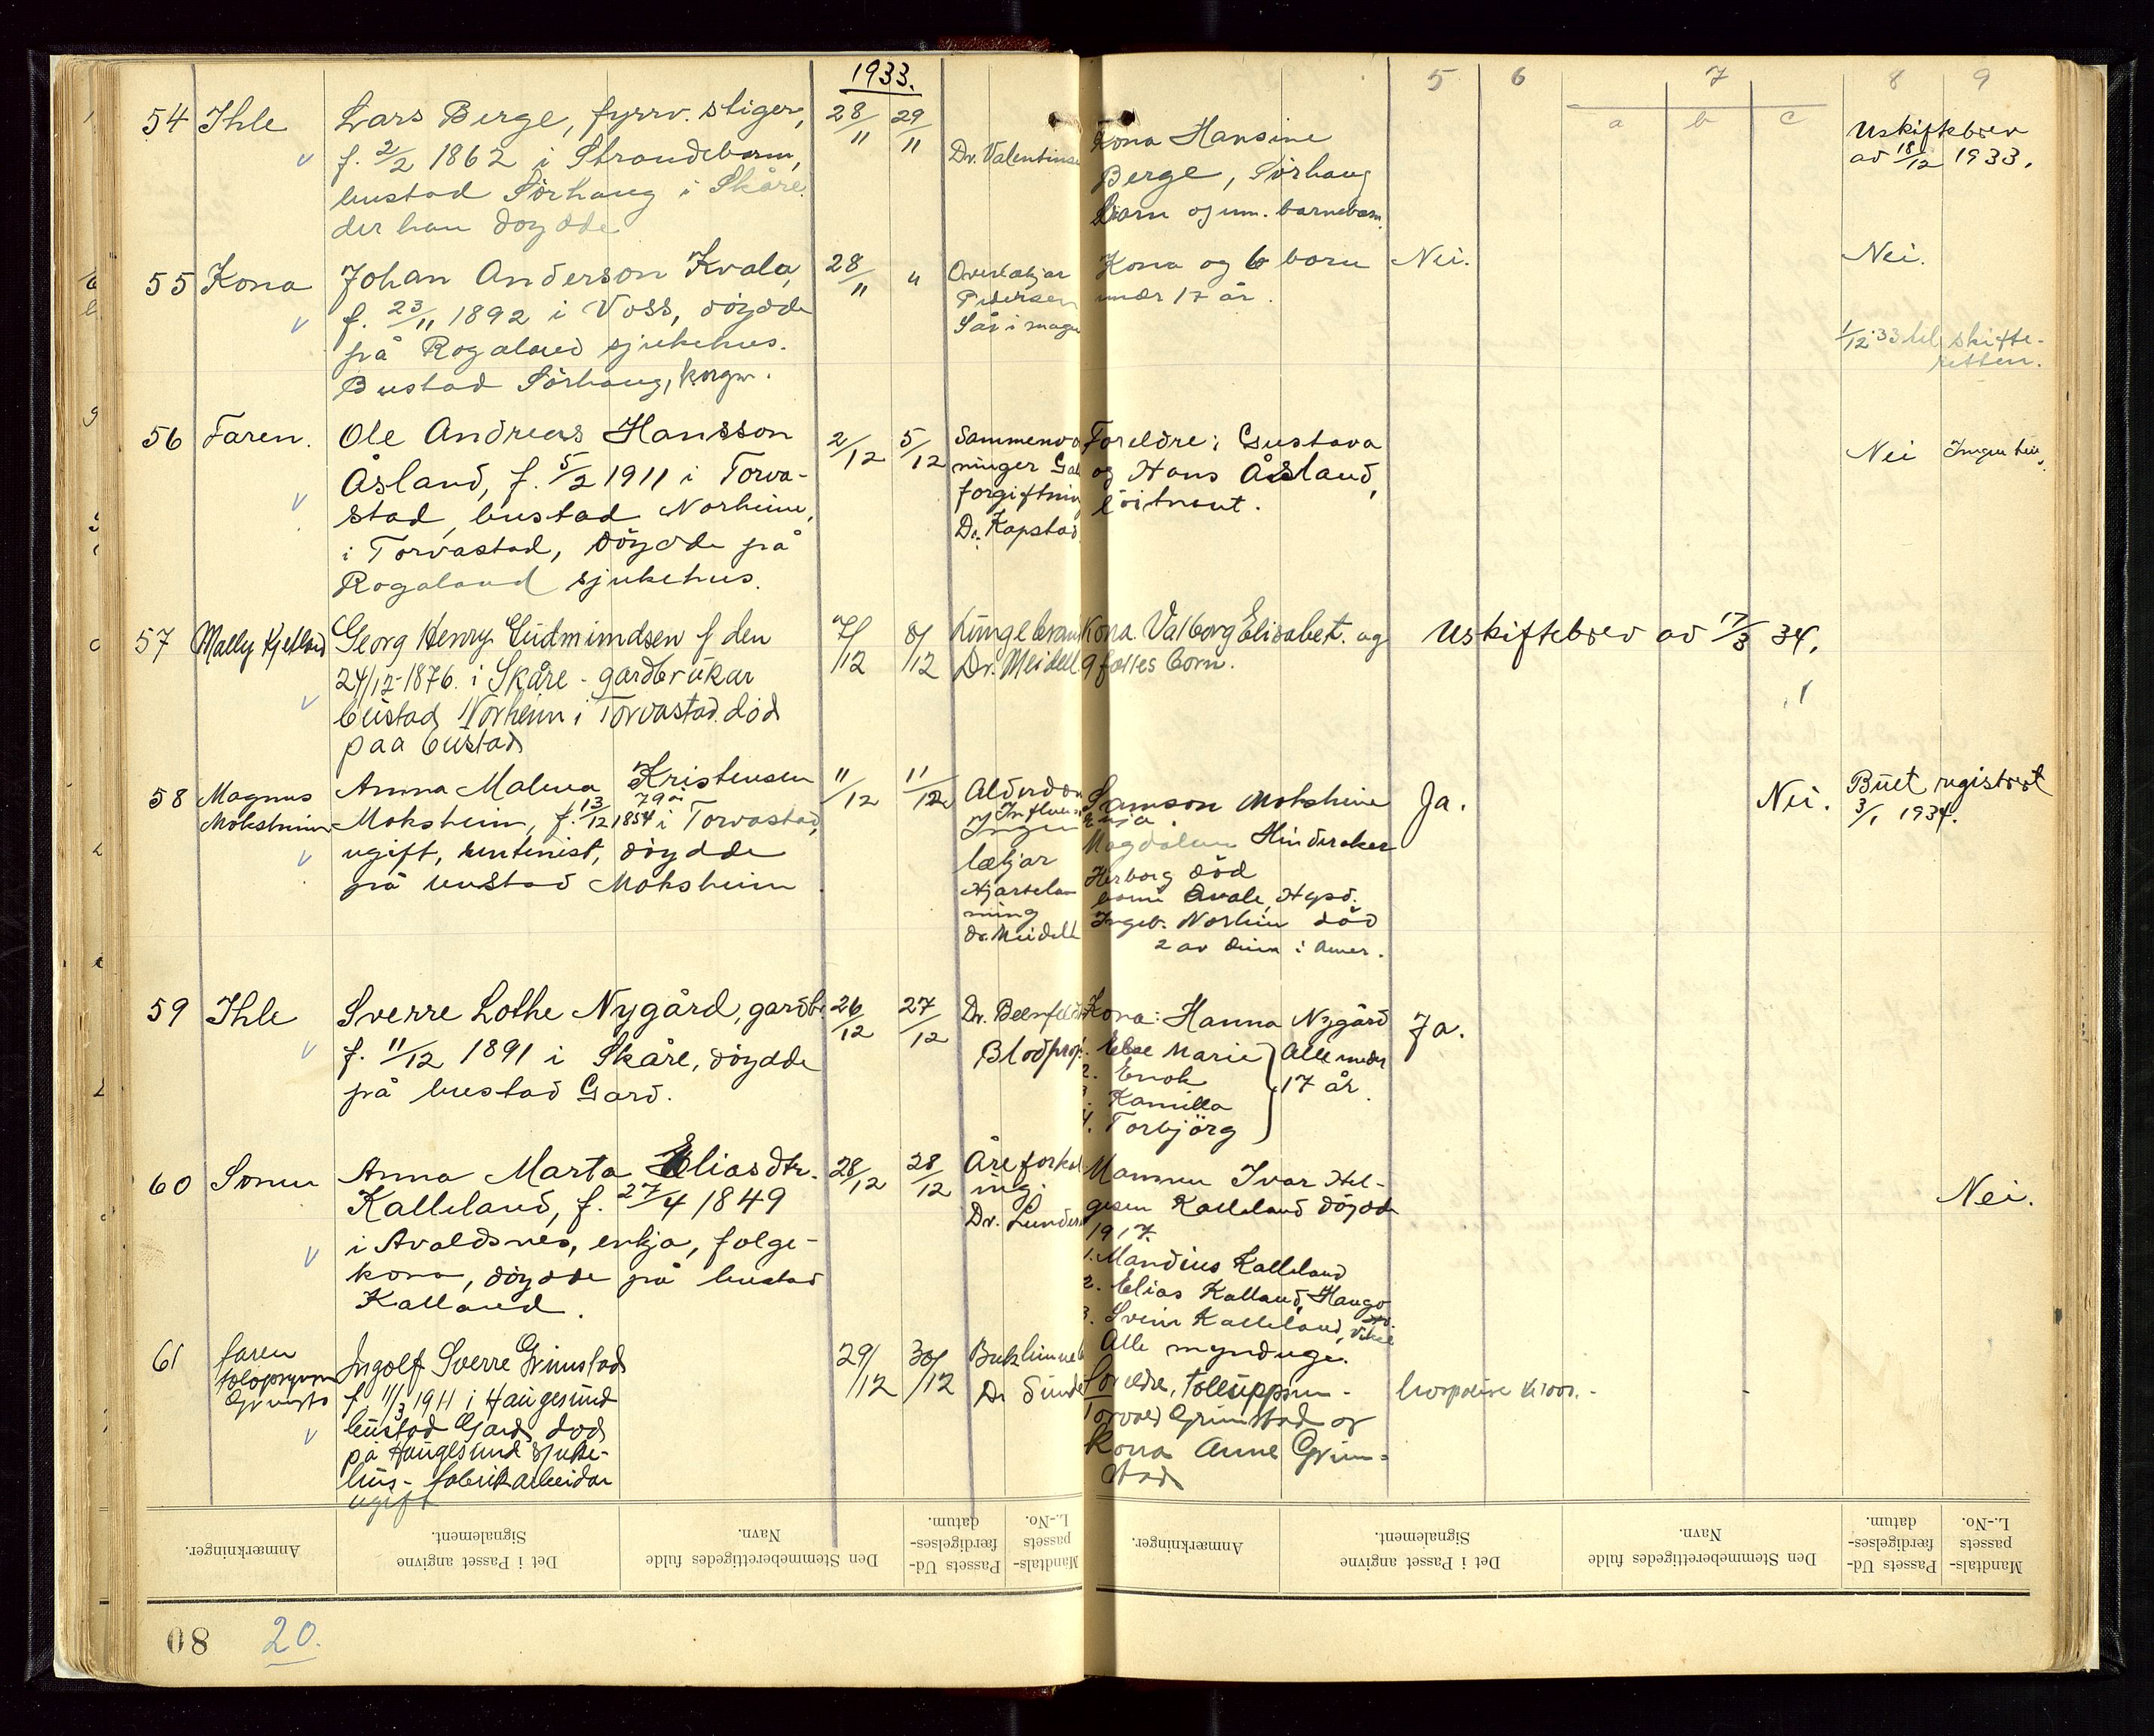 1933.
54 Ihle Lars Berge, fyrrv. stiger, 28/11 29/11
f. 2/2 1862 i Strandebarm,
bustad Sörhaug i Skåre
der han döydde
Dr. Valentinse
Kona Hansine
Berge, Sörhaug
Born og um. barneborn.
Uskiftebrev
av 18/12 1933.
55 Kona Johan Anderson Kvala, 28/11 "
f. 23/11 1892 i Voss, döydde
på Rogaland sjukehus.
Bustad Sörhaug, korgm.
Overlækjar
Pedersen
Sår i mage
Kona og 6 born
under 17 år.
Nei.
Nei.
1/12 33 til skifte-
retten.
56 Faren. Ole Andreas Hansson 2/12 5/12
Åsland, f. 5/2 1911 i Torva-
stad, bustad Norheim,
i Torvastad, döydde på
Rogaland sjukehus.
Sammenvo
ninger Gal
forgiftning
Dr. Kapstad
Foreldre: Gustava
og Hans Åsland,
löitnant.
Nei Ingen
57 Mally Kjetland Georg Henry Gudmundsen f den 7/12 8/12
24/12-1876. i Skåre - gardbrukar
bustad Norheim i Torvastad. död
paa bustad
Lungebran
Dr. Meidell
Kona Valborg Elisabet. og
9 felles born.
Uskiftebrev av 17/3 34.
58 Magnus
Moksheim
Anna Malena Kristensen 11/12 11/12
79 år
Moksheim, f. 13/12 1854 i Torvastad,
ugift, rentenist, döydde
på bustad Moksheim
Alderdom
Influensa
Ingen
lækjar
Hjartelam
ming
dr. Meidell
Samson Moksheim
Magdalena Hinderaker
Herborg död
born Avale, Hgsd.
Ingeb. Norheim död
2 av deim i Amer.
Ja.
Nei.
Buet registrert
3/1 1934.
59 Ihle Sverre Lothe Nygård, gardbr 26/12 27/12
f. 11/12 1891 i Skåre, döydde
på bustad Gard.
Dr. Beenfeldt
Blodprop.
Kona: Hanna Nygård
1. Else Marie
2. Enok
3. Kamilla
4. Torbjörg
Alle under
17 år.
Ja.
60 Sonen Anna Marta Eliasdtr. 28/12 28/12
Kalleland, f. 27/4 1849
i Avaldsnes, enkja, folge-
kona, döydde på bustad
Kalland.
Åreforkal
ing.
Dr. Sunder
Mannen Ivar Hel-
gesen Kalleland döydde
1917.
1. Mandius Kalleland
2. Elias Kalland, Haugo
3. Svein Kalleland,
Alle myndige.
Nei.
61 faren
Ingolf Sverre Grimstad 29/12 30/12
f. 11/3 1911 i Haugesund
bustad Gard, död
på Haugesund sjuke-
hus - fabrikarbeidar
ugift
Bukhinnebe
Dr Sunde
Foreldre, Tolluppsin-
Torvald Grimstad og
Kona Anne Grim-
stad
5 6 7 8 9
a b c
Anmærkninger.
Det i Passet angivne
Signalement.
Den Stemmeberettigedes fulde
Navn.
Passets Ud-
færdigelses-
datum.
Mandtals-
passets
L.-No.
Anmærkninger.
Det i Passet angivne
Signalement.
Den Stemmeberettigedes fulde
Navn.
Passets Ud-
færdigelses-
datum.
Mandtals-
passets
L.-No.
80
20.